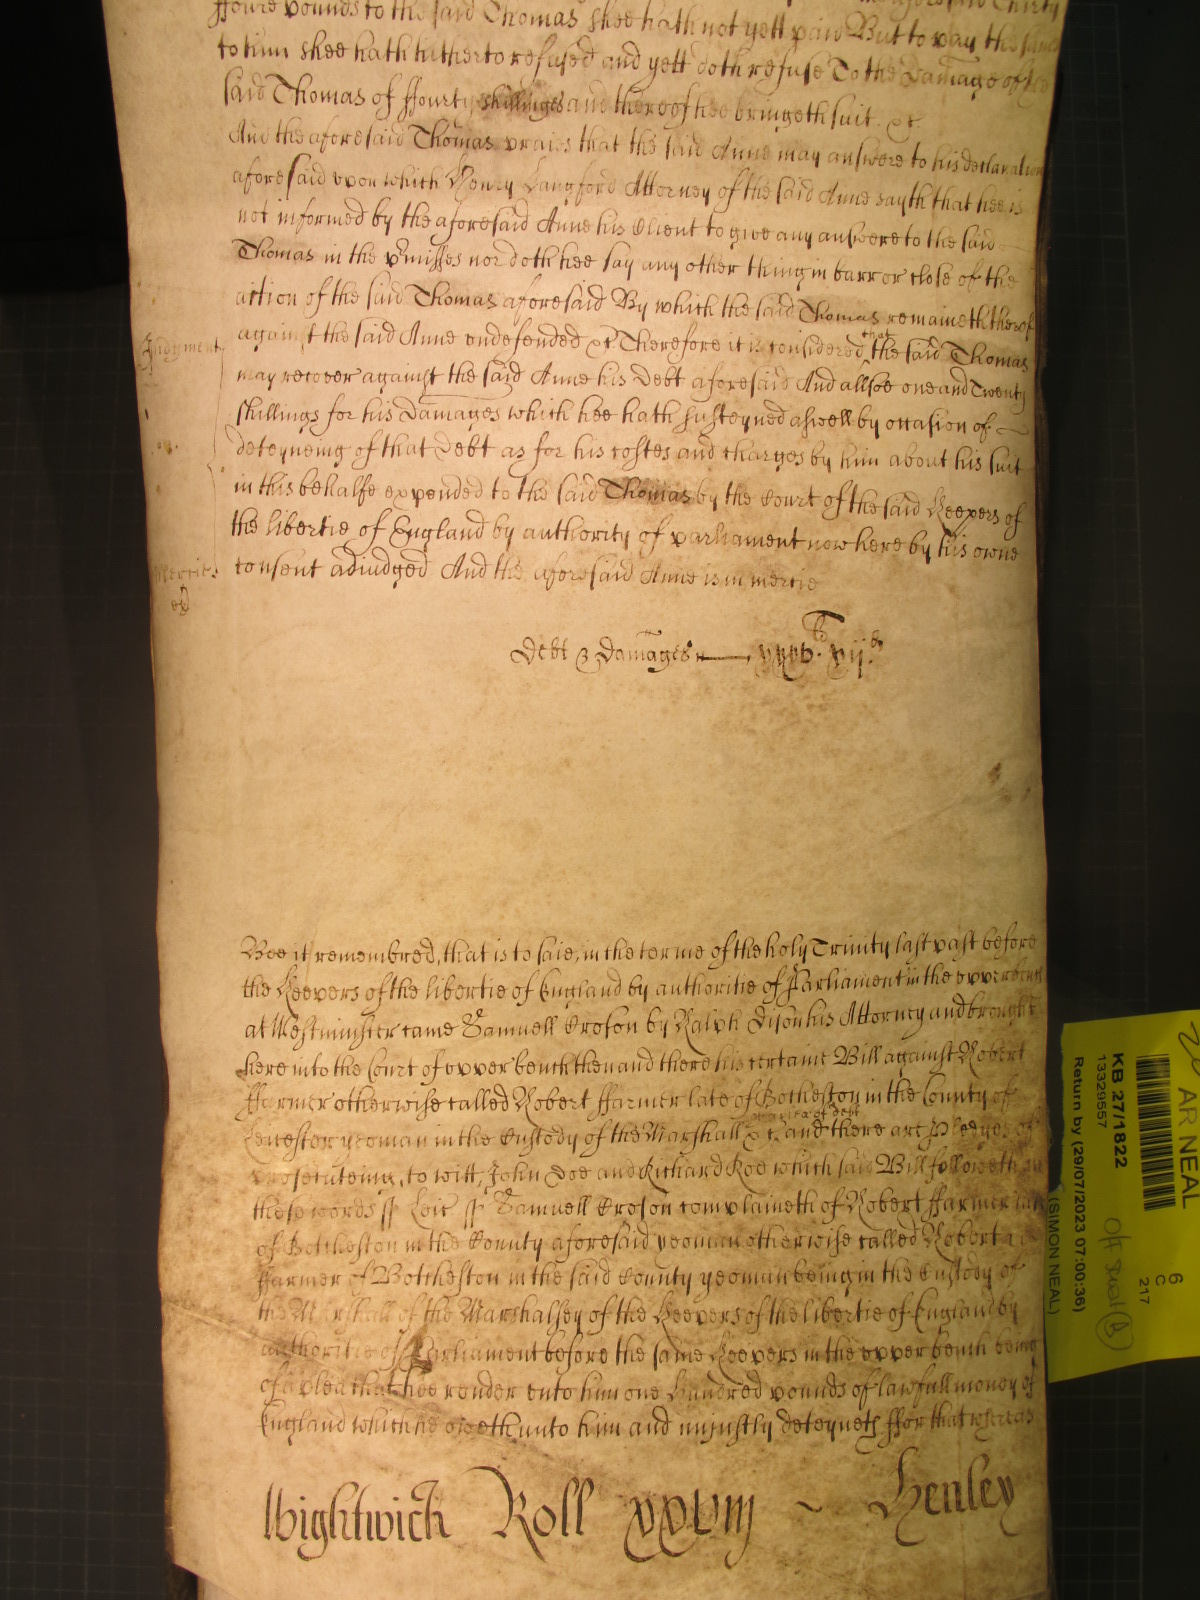 ffoure pounds to the said Thomas shee hath not yett paid But to pay the same
to him shee hath hitherto refused and yett doth refuse To the Damage of the
said Thomas of ffourty shillinges and thereof hee bringeth suit &c
And the aforesaid Thomas praies that the said Anne may answere to his declaration
aforesaid upon which Henry Langford Attorney of the said Anne sayth that hee is
not informed by the aforesaid Anne his Client to give any answere to the said
Thomas in the p'misses nor doth hee say any other thing in barr or close of the
action of the said Thomas aforesaid By which the said Thomas remaineth thereof
Judgment
against the said Anne undefended &c Therefore it is considered that the said Thomas
may recover against the said Anne his Debt aforesaid And allsoe one and Twenty
shillings for his Damages which hee hath susteyned aswell by occasion of
deteyneing of that Debt as for his costes and charges by him about his suit
in this behalfe expended to the said Thomas by the Court of the said Keepers of
the libertie of England by authority of parliament now here by his owne
consent adiudged And the aforesaid Anne is in mercie
Debt & Damages
Bee it remembred, that is to saie, in the terme of the holy Trinity last past before
the Keepers of the libertie of England by authoritie of Parliament in the upper bench
at Westminster came Samuell Croson by Ralph his Attorney and brought
here into the Court of upper bench then and there his certaine Bill against Robert
ffarmer otherwise called Robert ffarmer late of Botcheston in the County of
Leicester yeoman in the Custody of the Marshall &c of a plea of debt and there are Pledges of
prosecuteing, to witt, John Doe and Richard Roe which said Bill followeth in
these words ss Leic ss Samuell Croson complaineth of Robert ffarmer late
of Botcheston in the County aforesaid yeoman otherwise called Robert
ffarmer of Botcheston in the said County yeoman being in the Custody of
the Marshall of the Marshalsey of the Keepers of the libertie of England by
authoritie of Parliament before the same Keepers in the upper bench being
of a plea that hee render unto him one hundred pounds of lawfull money of
England which he oweth unto him and unjustly deteyneth ffor that whereas
Wightwick Roll xxviij ~ Henley
AR NEAL
KB 27/1822
13329557
Return by (29/07/2023 07:00:36)
(SIMON NEAL)
6
C
217